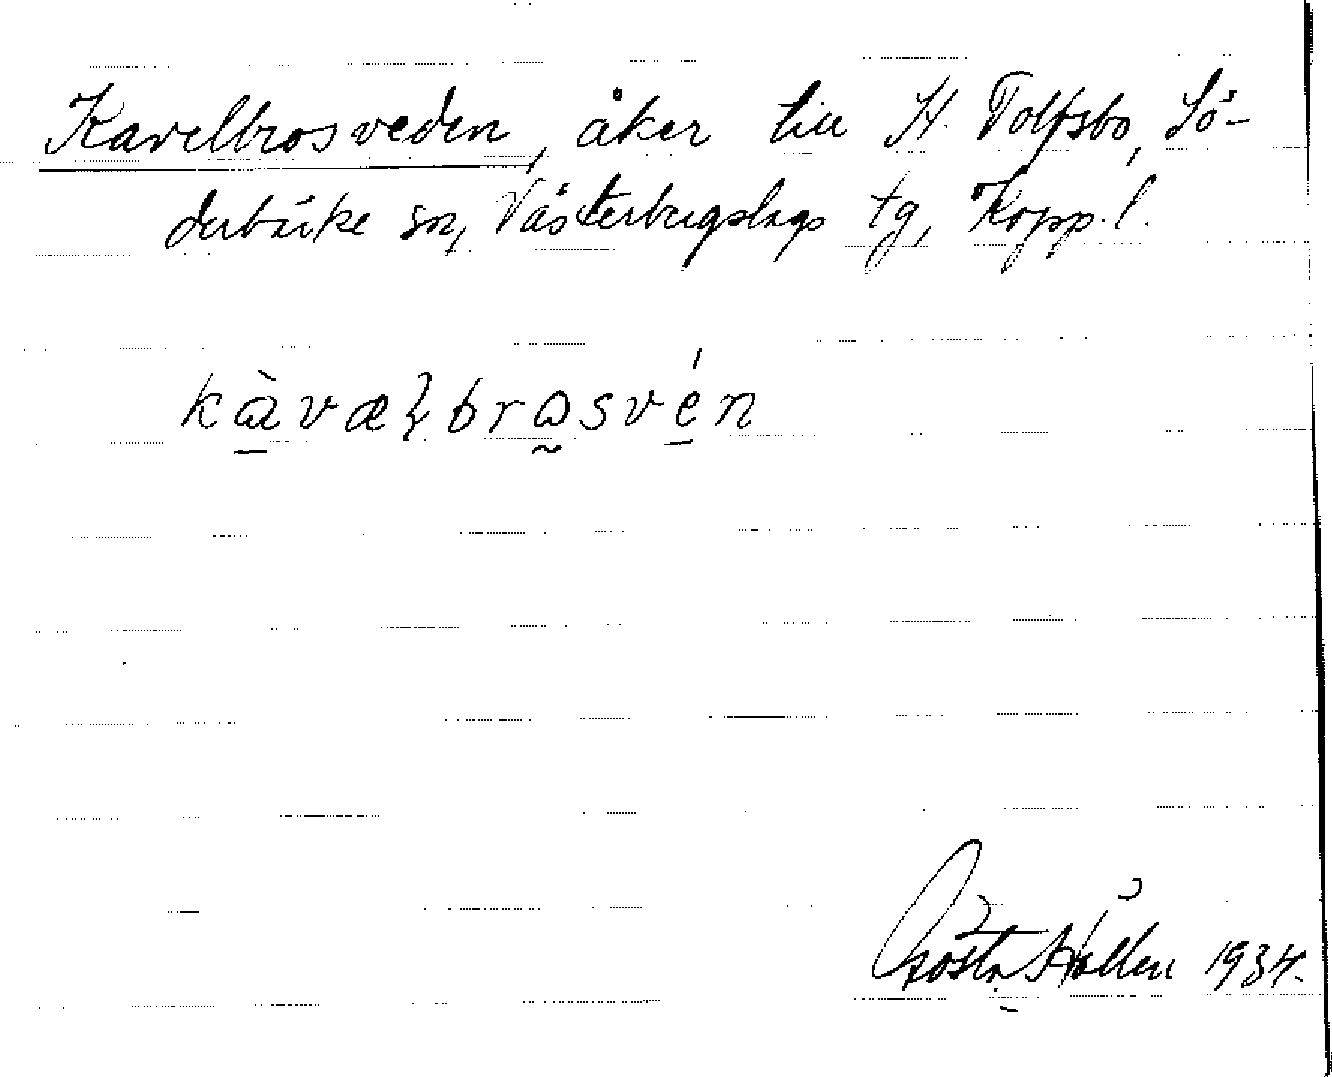 Kavelbrosveden, åker till H. Tolfsbo, Sö-
derbärke sn, Västerbergslags tg, Kopp. l.
kàvæłbrɷsvén
Gösta 1934.